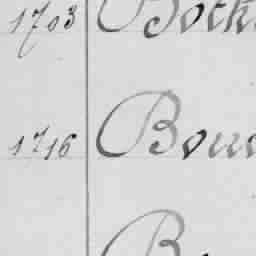 1703 Bock
1716 Bou
B